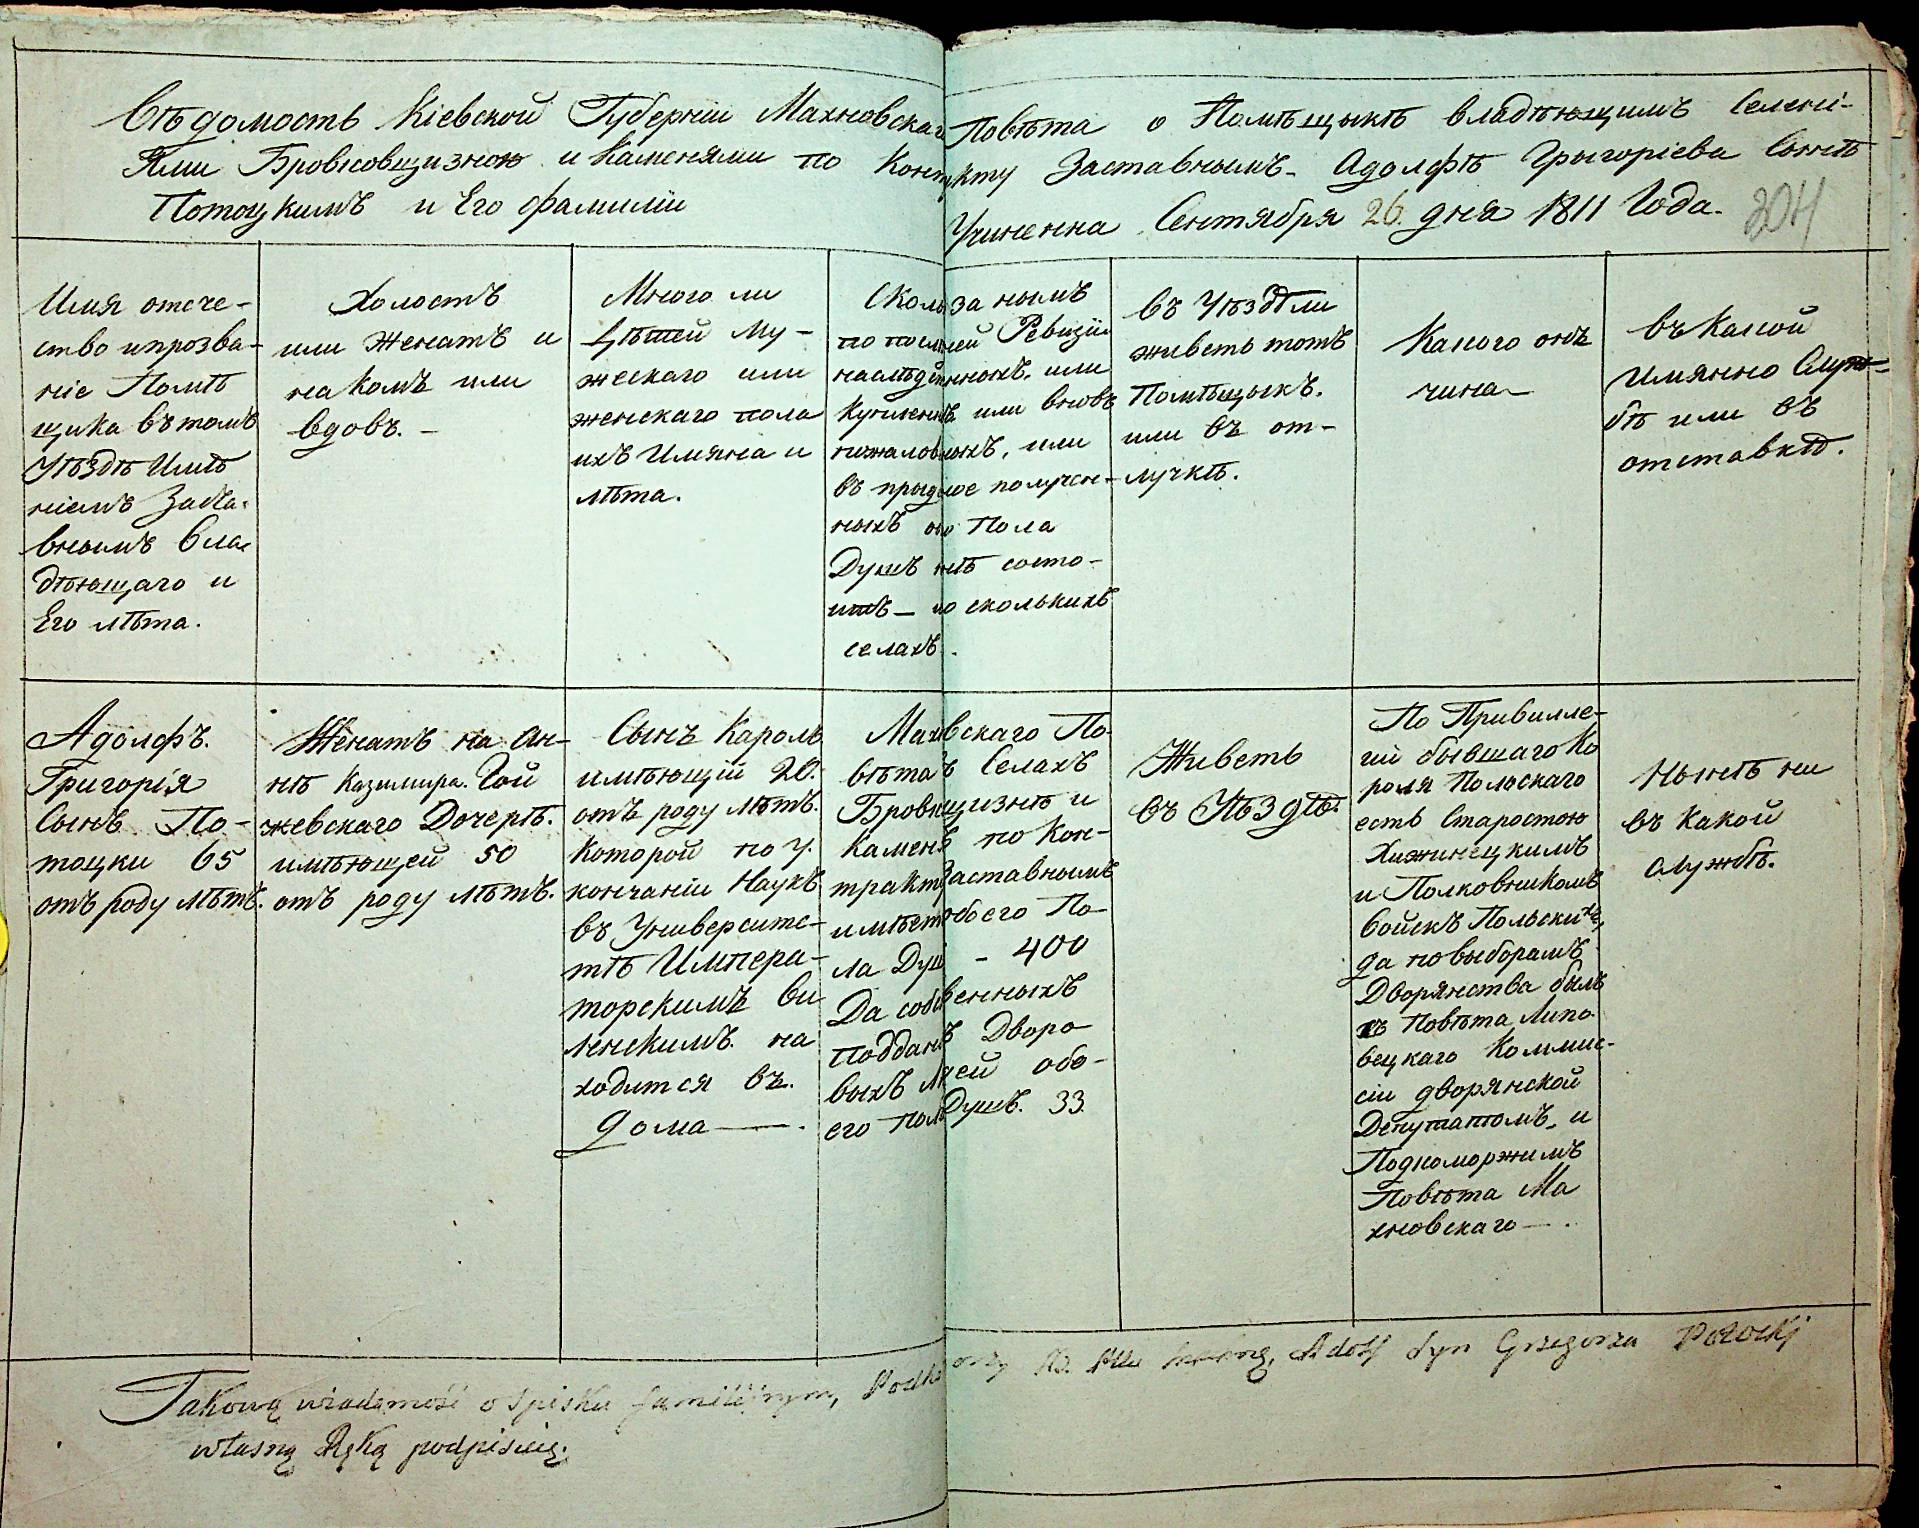 Вѣдомость Кіевской Губерніи Махновскаго Повѣта о Помѣщыкѣ владѣющимъ Селені-
Ями Бровковщизною и Каменями по Контракту Заставнымъ Адолфѣ Грыгоріева Сынѣ
Потоцкимъ и Его фамиліи Учиненна Сентября 26 дня 1811 Года.
204
Имя отече-
ство и прозва-
ніе Помѣ
щика въ томъ
Уѣздѣ Имѣ
ніемъ Заста-
внымъ Вла-
дѣющаго и
Его лѣта.
Холостъ
или Женатъ и
на комъ или
вдовъ.
Много ли
Дѣтей Му-
жескаго или
женскаго пола
ихъ Имяна и
лѣта.
Сколько за нымъ
по последней Ревизіи
наслѣдственныхъ или
купленныхъ или вновь
пожалованныхъ, или
въ прыданое получен-
ныхъ Пола
Душъ состо-
итъ во сколькихъ
селахъ.
въ Уѣздѣ ли
живетъ тотъ
Помѣщыкъ.
или въ от-
лучкѣ.
Какого онъ
чина
въ Какой
Имянно Служ-
бѣ или въ
отставкѣ.
Адолфъ
Григорія
Сынъ По-
тоцки 65
отъ роду лѣтъ.
Женатъ на Ан-
нѣ Казимира Гой
жевскаго Дочерѣ.
имѣющей 50
отъ роду лѣтъ.
Сынъ Кароль
имѣющій 20.
отъ роду лѣтъ.
Которой по У-
кончаніи Наукъ
въ Университе-
тѣ Импера-
торскимъ Ви
ленскимъ на
ходится въ
Дома
Махновскаго По-
вѣта въ Селахъ
Бровковщизнѣ и
Каменяхъ по Кон-
тракту Заставнымъ
имѣетъ обоего По-
ла Душъ - 400
Да собственныхъ
подданныхъ Дворо
выхъ людей обо-
его пола Душъ. 33.
Живетъ
въ Уѣздѣ.
По Привилле-
гій бывшаго Ко
роля Польскаго
есть Старостою
Хижинецкимъ
и Полковникомъ
Войскъ Польскихъ,
да по выборамъ
Дворянства былъ
въ Повѣта Липо
вецкаго Коммис-
сіи дворянской
Депутатомъ и
Подкоморжимъ
Повѣта Ма
хновскаго
Нынѣ ни
въ какой
службѣ.
Takową wiadomość o Spisku familijnym, Adolf Syn Grzegorza Potocki
własną Ręką podpisuię.